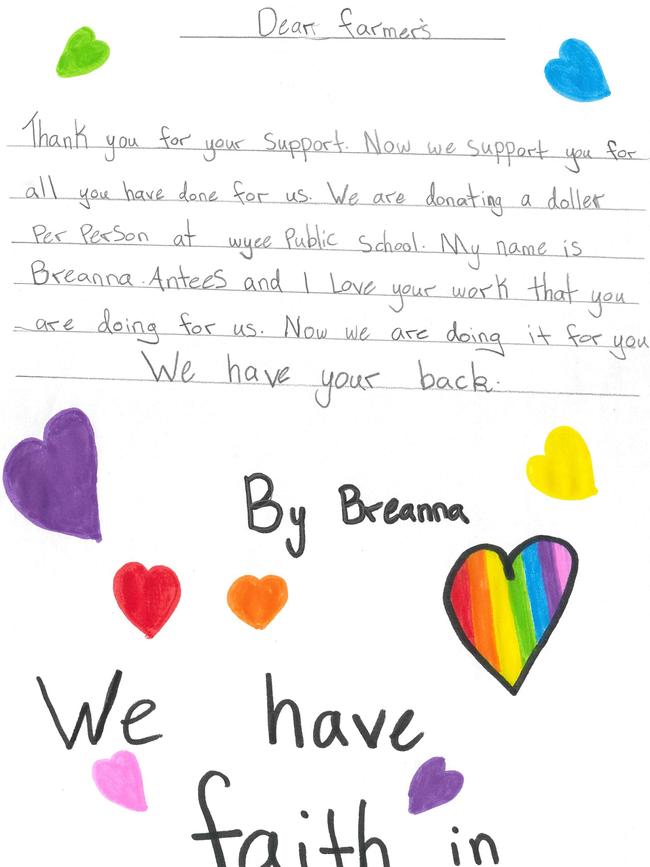 Dear farmer's
Thank you for your support. Now we support you for
all you have done for us. We are donating a doller
Per Person at wyee Public School. My name is
Breanna.Antees and I Love your work that you
are doing for us. Now we are doing it for you
We have your back.
By Breanna
We have
faith in